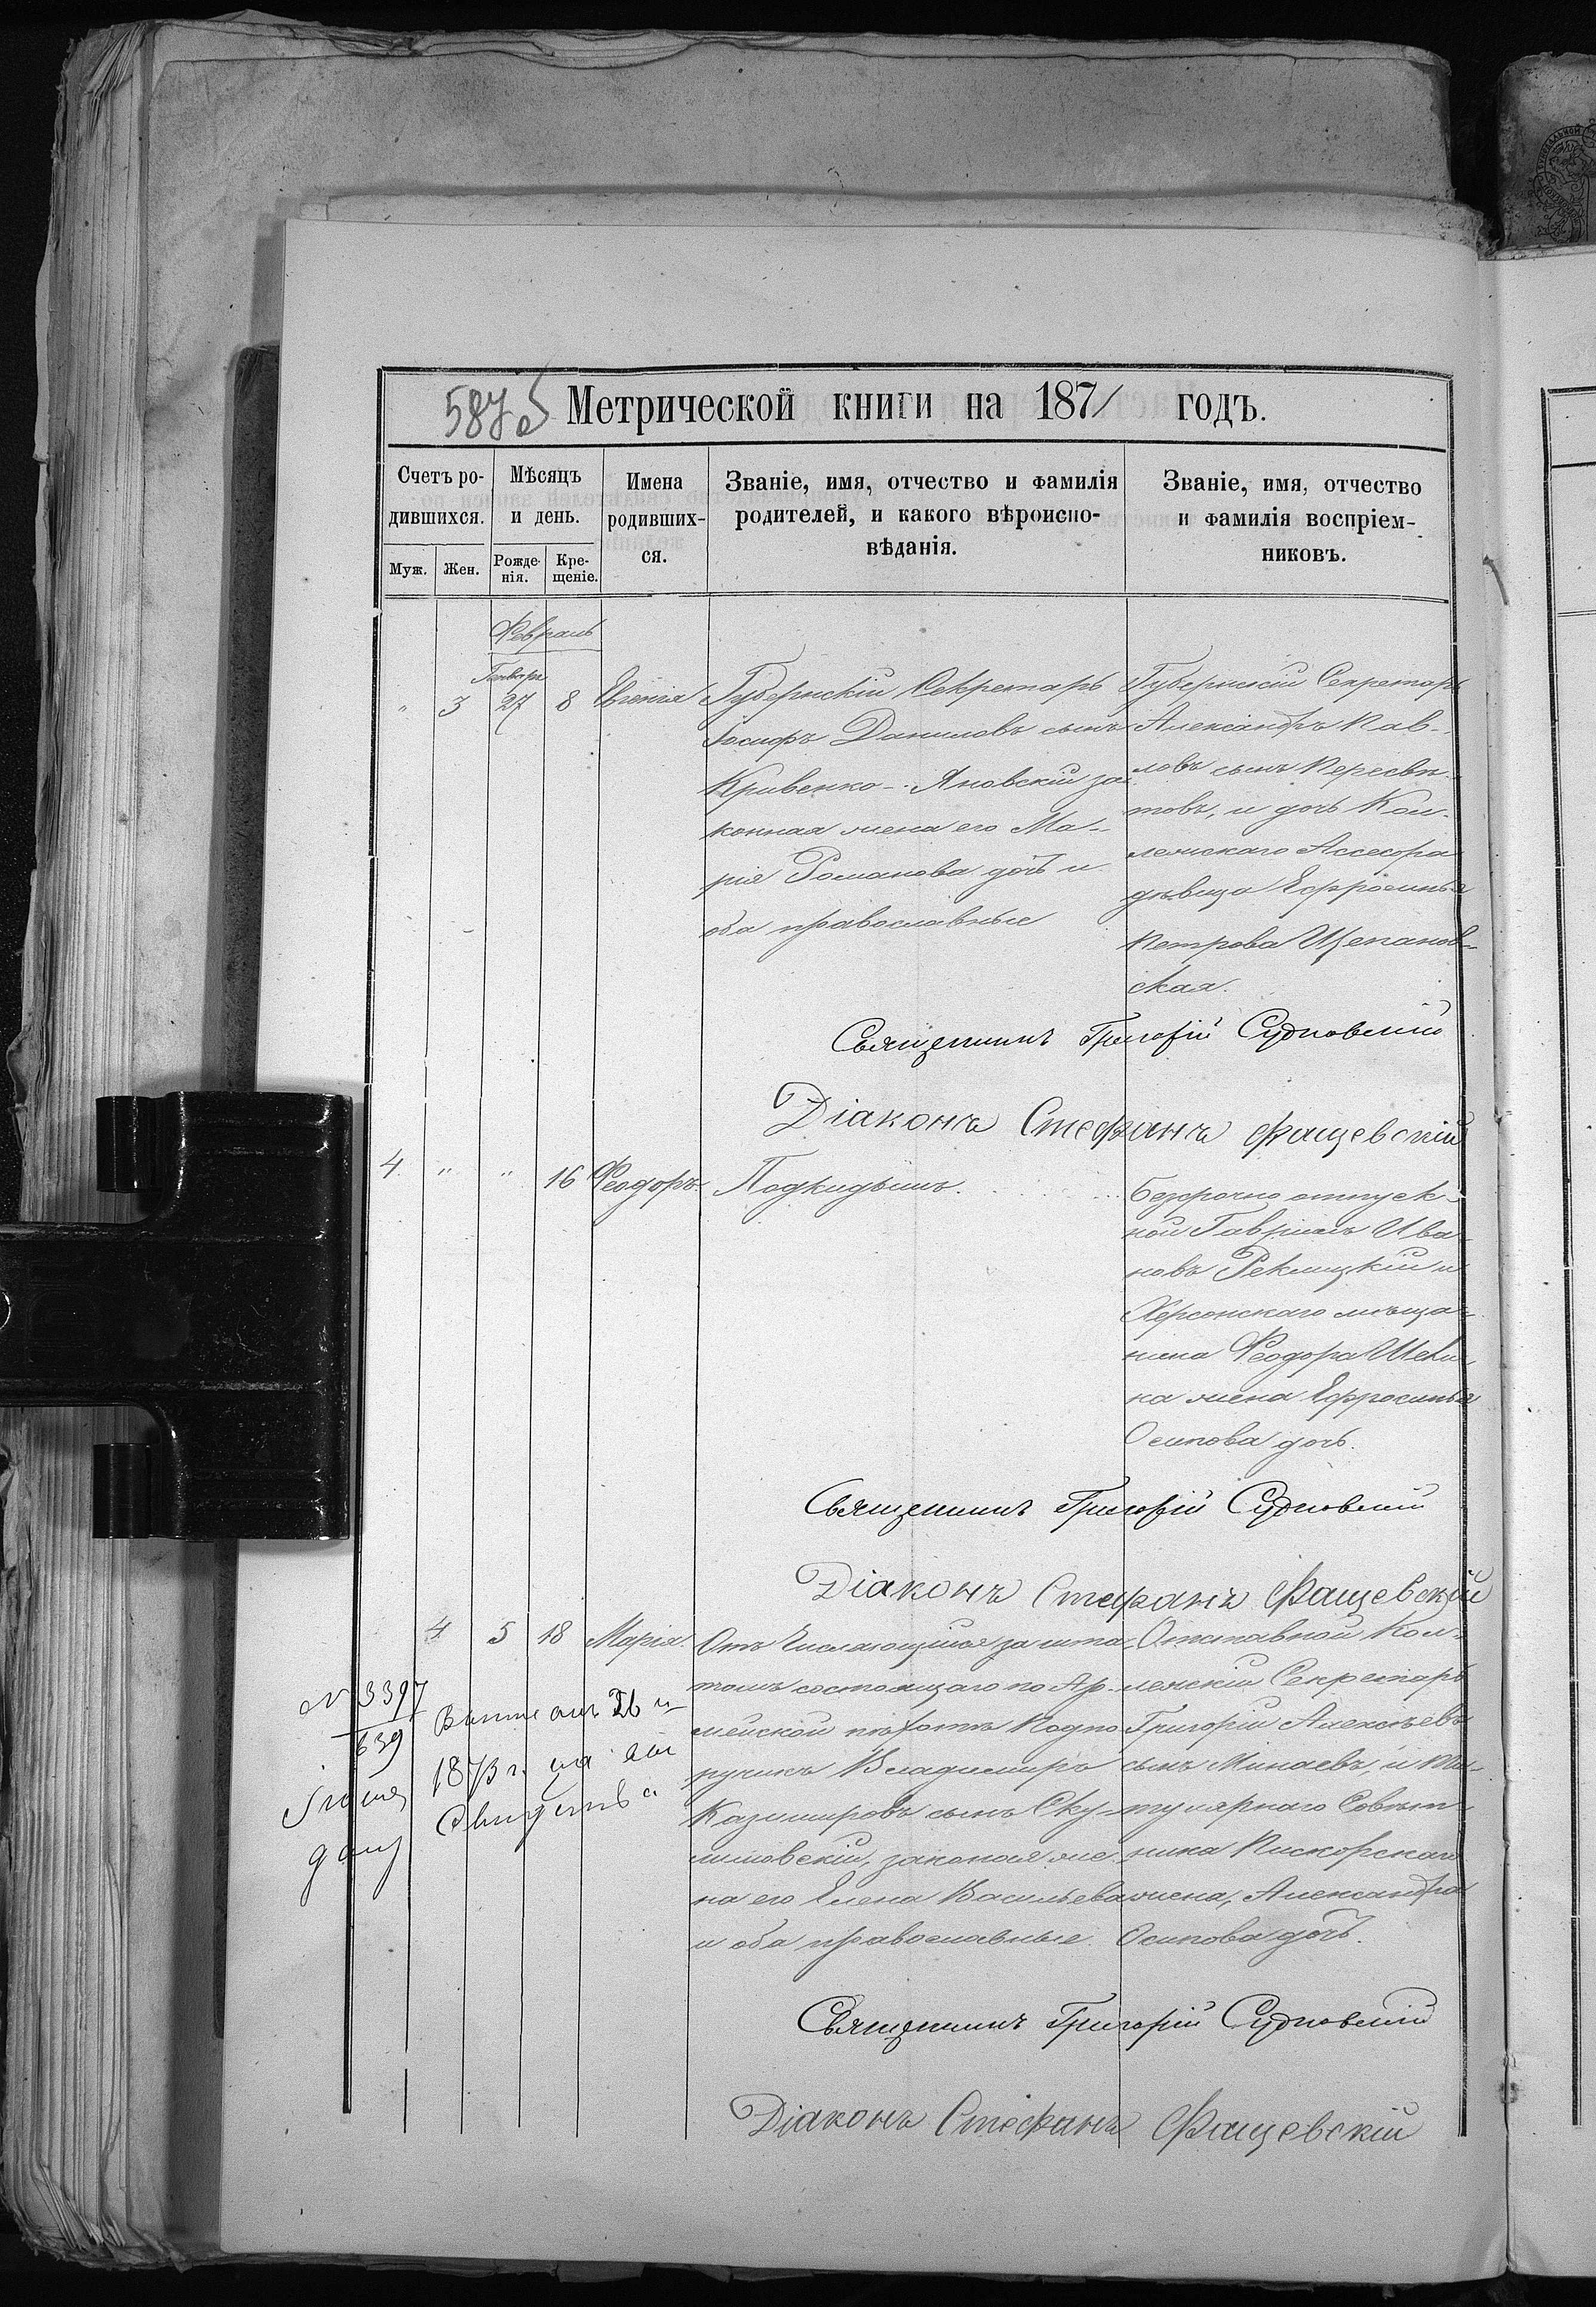 587 Метрической книги на 1871 годъ.
Счетъ родившихся.
Мѣсяцъ и день.
Имена родившихся.
Званіе, имя, отчество и фамилія
родителей, и какого вѣроиспо-
вѣданія.
Званіе, имя, отчество
и фамилія воспріем-
никовъ.
Муж. Жен. Рожденія. Крещеніе.
Февраль
Генваря
" 3 27 8 Евгенія
Губернскій Секретарь
Іосифъ Даниловъ сынъ
Кривенко-Яновскій за-
конная жена его Ма-
рія Романова дочь и
оба православные
Губернскій Секретарь
Александръ Пав-
ловъ сынъ Пересвѣ-
товъ, и дочь Кол-
лежскаго Ассесора
дѣвица Ефросинья
Петрова Щепанов-
ская.
Священникъ Григорій Судковскій
Діаконъ Стефанъ Фащевскій
4 " " 16 Феодоръ. Подкидышъ.
Безсрочно отпуск-
ной Гавріилъ Ива-
новъ и
Херсонскаго мѣща-
нина Феодора
на жена Ефросинья
Осипова дочь.
Священникъ Григорій Судковскій
Діаконъ Стефанъ Фащевскій
4 5 18 Марія.
Отъ Числящійся за шта-
томъ состоящаго по Ар-
мейской пѣхотѣ Подпо-
ручикъ Владимиръ
Казимировъ сынъ
законая же-
на его Елена Васильева
и оба православные.
Отставной Кол-
лежскій Секретарь
Григорій Алексѣевъ
сынъ Минаевъ, и Ти-
тулярнаго Совѣт-
ника Пискорскаго
жена, Александра
Осипова дочь.
№ 3397
639
1873 г.
Священникъ Григорій Судковскій
Діаконъ Стефанъ Фащевскій